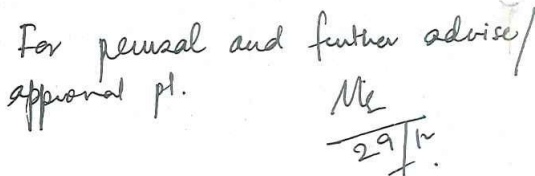 For perusal and further advise/
approval pl.
29/12